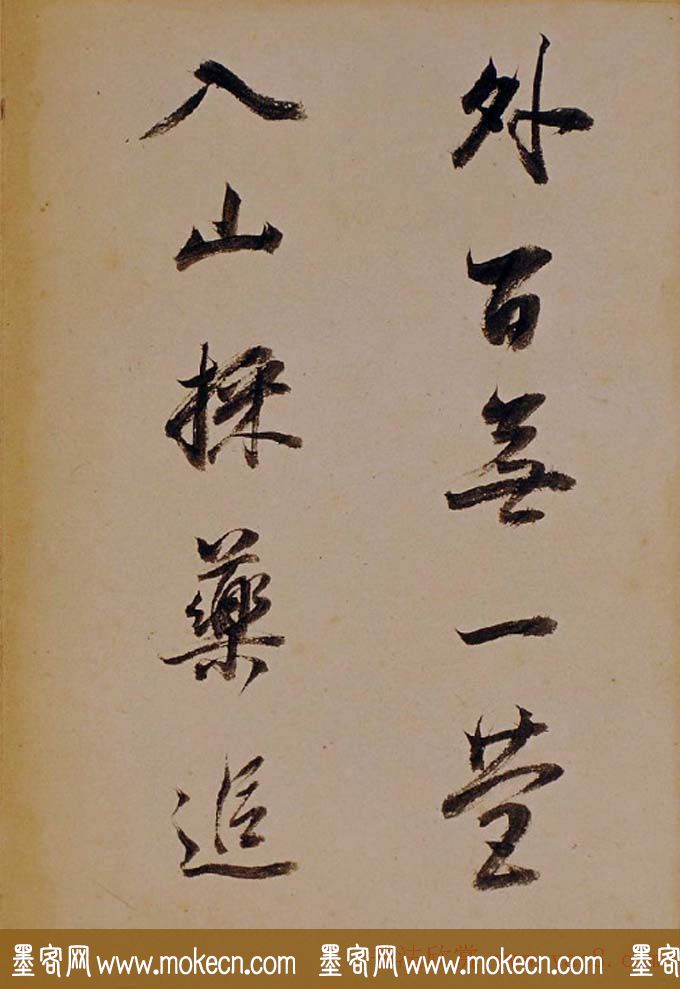 外百無一營
入山採藥追
墨客网 www.mokecn.com 墨客网 www.mokecn.com